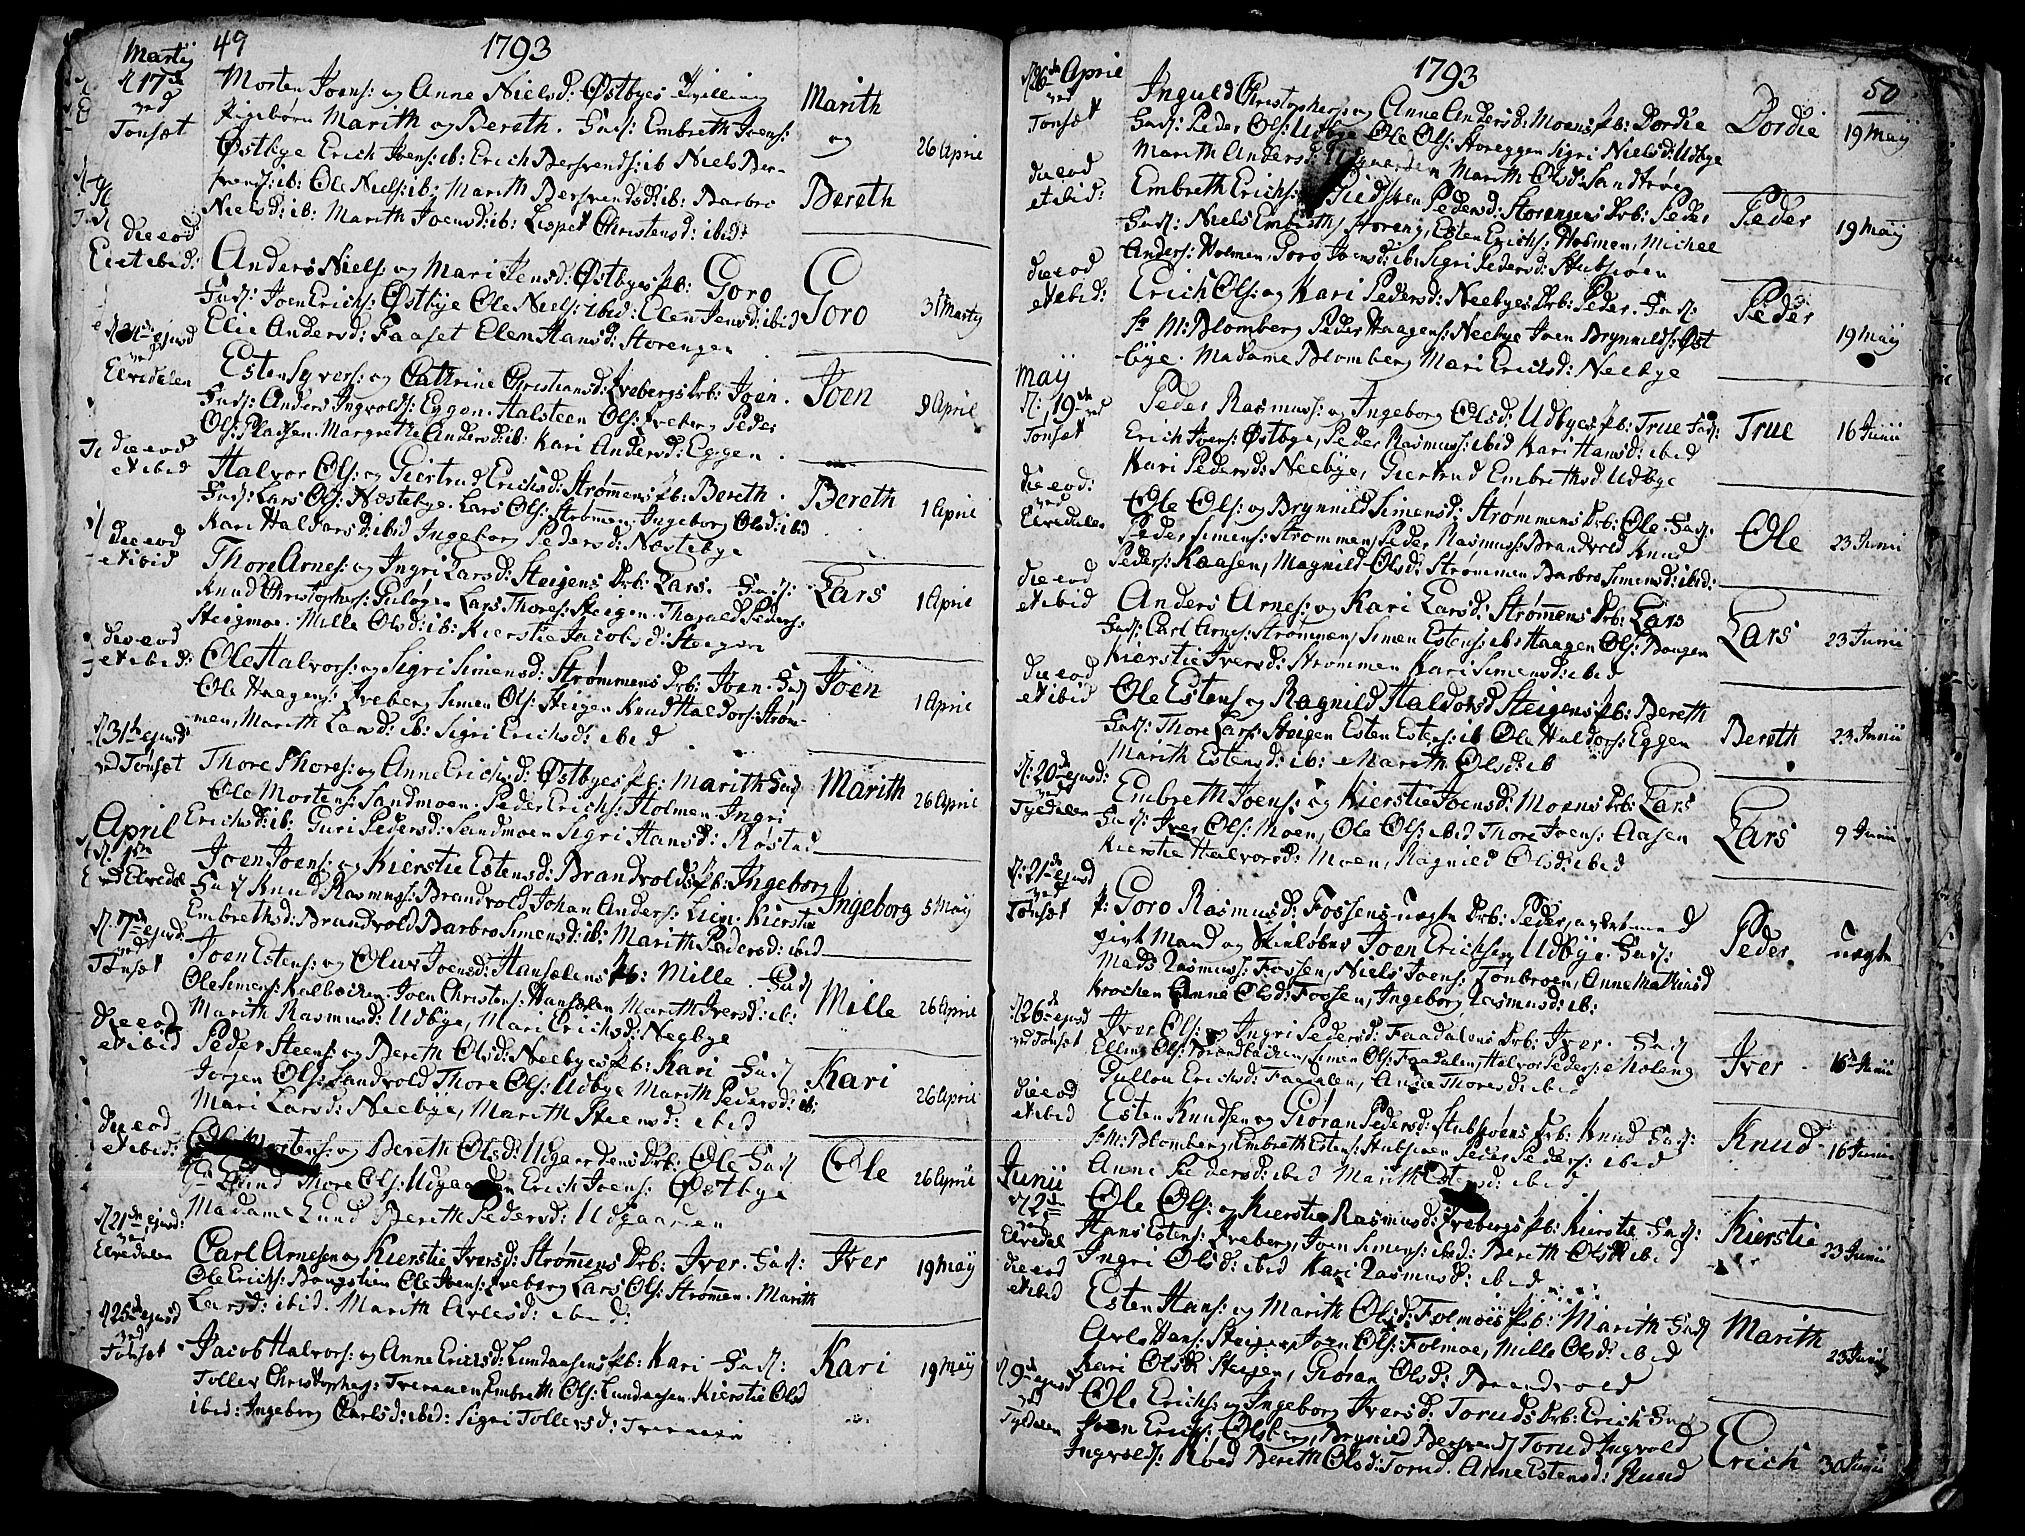 49
1793
Martij
d 17de
ved
Tonsæt
Morten Joens: og Anne Nielsd: Østbyes Tvilling
Pigebørn Marith og Bereth. Fad: Embreth Joens:
Østbye Erich Joens: ib: Erich Bersvends: ib Niels Ber-
svends: ib: Ole Niels: ib: Marith Bersvendsd: ib: Barbro
Nielsd: ib: Marith Joensd: ib: Lispet Christensd: ibid:
Marith
og
Bereth
26 April
die eod
et ibid:
Anders Niels: og Mari Jensd: Østbyes pb: Goro
Fad: Joen Erichs: Østbye Ole Niels: ibid: Elen Jensd: ibid
Elie Andersd: Faaset Elen Hansd: Storengen
Goro
31 Martij
d 24de ejusd
ved
Elvedalen
Esten Syvers: og Cathrine Christiansd: Irebergs Drb: Joen.
Fad: Anders Ingvolds: Eggen. Halsteen Ols: Ireberg Peder
Ols: Plassen. Margrethe Andersd: ib: Kari Andersd: Eggen.
Joen
9 April
die eod
et ibid
Halvor Ols: og Giertrud Erichsd: Strømens pb: Bereth.
Fad: Lars Ols: Næstebye. Lars Ols: Strømen. Ingeborg Olsd: ibid
Kari Halvorsd: ibid Ingeborg Pedersd: Næstebye
Bereth
1 April
die eod
et ibid
Thore Arnes: og Ingri Larsd: Steigens Drb: Lars. Fad:
Knud Christophers: Lars Thores: Steigen. Tharald Peders:
Steigmoe. Mille Olsd: ib: Kierstie Jacobsd: Steigen
Lars
1 April
die eod
et ibid:
Ole Halvors: og Sigri Simensd: Strømens Drb: Joen. Fad
Ole Haagens: Ireberg Simen Ols: Steigen Knud Haldors: Strøm-
men, Marith Larsd: ib: Sigri Erichsd: ibid
Joen
1 April
d 31te ejusd
ved Tonsæt
Thore Thores: og Anne Erichsd: Østbyes pb: Marith Fad
Ole Mortens: Sandmoen. Peder Erichs: Holmen. Ingri
Erichsd: ib: Guri Pedersd: Sandmoen Sigri Hansd: Røstad
Marith
26 April
April
d: 1ste
ved Elvedal
Joen Joens: og Kierstie Estensd: Brandvolds pb: Ingeborg
Fad Knud Rasmus: Brandvold Johan Anders: Lien. Kierstie
Embrethsd: Brandvold Barbro Simensd: ib: Marith Pedersd: ibid
Ingeborg
5 Maij
d. 7de ejusd
ved
Tonsæt
Joen Estens: og Oluv Joensd: Hansælens pb: Mille. Fad
Ole Simens: Kalbæcken. Joen Christens: Hansælen Marith Iversd: ib:
Marith Rasmusd: Udbye, Mari Erichsd: Neebye
Mille
26 April
die eod
et ibid
Peder Steens: og Bereth Olsd: Neebyes pb: Kari Fad
Jørgen Ols: Sandvold Thore Ols: Udbye Marith Pedersd: ib:
Mari Larsd: Neebye, Marith Steensd: ibid
Kari
26 April
die eod
et ibid:
Ole Mortens: og Bereth Olsd: Utgaardens Drb: Ole Fad
Lund Thore Ols: Utgaarden Erich Joens: Østbye
Madame Lund Bereth Pedersd: Udgaarden
Ole
26 April
d 21de ejusd:
ved
Elvedalen
Carl Arnesen og Kierstie Iversd: Strømens Drb: Iver. Fad:
Ole Erichs: Bangstien Ole Joens: Ireberg Lars Ols: Strømen. Marith
Larsd: ibid. Marith Arlesd: ibid:
Iver
19 Maij
d 25de ejusd
ved
Tonsæt
Jacob Halvors: og Anne Erichsd: Lundaasens pb: Kari Fad:
Toller Christophers: Treraaen, Embreth Ols: Lundaasen. Kierstie Olsd
ibid: Ingeborg Carlsd: ibid: Sigri Tollersd:
Kari
19 Maij
1793
50
d 26de April
ved
Tonsæt
Inguld Christophers: og Anne Andersd: Moens pb: Dordie
Fad: Peder Ols: Udbye Ole Ols: Storeggen Sigri Nielsd: Udbye
Marith Andersd: Marith Olsd: Sandtrøe
Dordie
19 Maij
die eod
et ibid:
Embreth Erichs: Giedsken Pedersd: Storengens Drb: Peder
Fad: Niels Embreths: Storeng, Esten Erichs: Holmen, Michel
Anders: Holmen, Goro Joensd: ib: Sigri Pedersd: Stubsiøen
Peder
19 Maij
die eod
et ibid:
Erich Ols: og Kari Pedersd: Neebyes Drb: Peder. Fad:
Sr M: Blomberg Peder Haagens: Neebye Joen Brynnilds: Øst
bye. Madame Blomberg Mari Erichsd: Neebye
Peder
19 Maij
Maij
d: 19de ved
Tonsæt
Peder Rasmuss: og Ingeborg Olsd: Udbyes pb: True Fad:
Erich Joens: Østbye, Peder Rasmuss: ibid Kari Hansd: ibid
Kari Pedersd: Neebye, Giertrud Embrethsd Udbye
True
16 Junii
die eod:
ved
Elvedalen
Ole Ols: og Brynnild Simensd: Strømmens Drb: Ole. Fad:
Peder Simens: Strømmen, Peder Rasmuss: Brandvold Knud
Peders: Kaasen, Magnild Olsd: Strømmen Barbro Simensd: ibid:
Ole
23 Junii
die eod
et ibid
Anders Arnes: og Kari Larsd: Strømens Drb: Lars
Fad: Carl Arnes: Strømmen, Simen Estens: ib: Haagen Ols: Bangen
Kierstie Iversd: Strømmen Kari Simensd: ibid
Lars
23 Junii
die eod
et ibid
Ole Estens: og Ragnild Haldorsd Steigens pb: Bereth
Fad: Thore Lars: Steigen Esten Estens: ib Ole Haldors: Eggen
Marith Estensd: ib: Marith Olsd: ib
Bereth
23 Junii
d: 20de ejusd:
ved
Tyldalen
Embreth Joens: og Kierstie Joensd: Moens Drb: Lars
Fad: Iver Ols: Moen, Ole Ols: ibid Thore Joens: Aasen
Kierstie Halvorsd: Moen, Ragnild Olsd: ibid
Lars
9 Junii
d: 21de ejusd
ved
Tonsæt
p: Goro Rasmusd: Fossens uægte Drb: Peder, avlet med
givt Mand og Skieløber Joen Erichsen Udbye. Fad:
Mads Rasmuss: Fossen, Niels Joens: Tonbroen, Anne Mathiasd
Krochen Anne Olsd: Fossen, Ingeborg Rasmusd: ib:
Peder.
uægte
d 26de ejusd
ved Tonsæt
Iver Ols: og Ingri Pedersd: Faadalens Drb: Iver. Fad
Elling Ols: Brandbacken, Simen Ols: Faadalen, Halvor Peders: Moleng
Gullou Erichsd: Faadalen, Anne Thoresd: ibid
Iver
16de Junii
die eod
et ibid
Esten Knudsen og Giøran Pedersd: Stubsøens Drb: Knud Fad:
Sr M: Blomberg Embreth Estens: Stubsiøen Peder Peders: ibid
Anne Pedersd: ibid Marith Estensd: ibid
Knud
16 Junii
Junii
d 2de
ved
Elvedal
Ole Ols: og Kierstie Rasmusd: Irebergs pb: Kierstie Fad:
Hans Estens: Ireberg, Joen Simens: ibid: Bereth Olsd: ibid
Ingri Olsd: ibid Kari Rasmusd: ibid
Kierstie
23 Junii
die eod
et ibid
Esten Hans: og Marith Olsd: Folmoes pb: Marith Fad
Arls Hans: Steigen, Joen Ols: Folmoe, Mille Olsd: ibid
Kari Olsd: Steigen, Giøran Olsd: Brandvold
Marith
23 Junii
d 9de ejusd
ved
Tyldalen
Ole Erichs: og Ingeborg Iversd: Toruds Drb: Erich Fad
Joen Erichs: Olsberg, Brynild Bersvends Torud Ingvold
Ingvolds: Røed Bereth Olsd: Torud. Anne Estensd: Rund
Erich
30 Junii